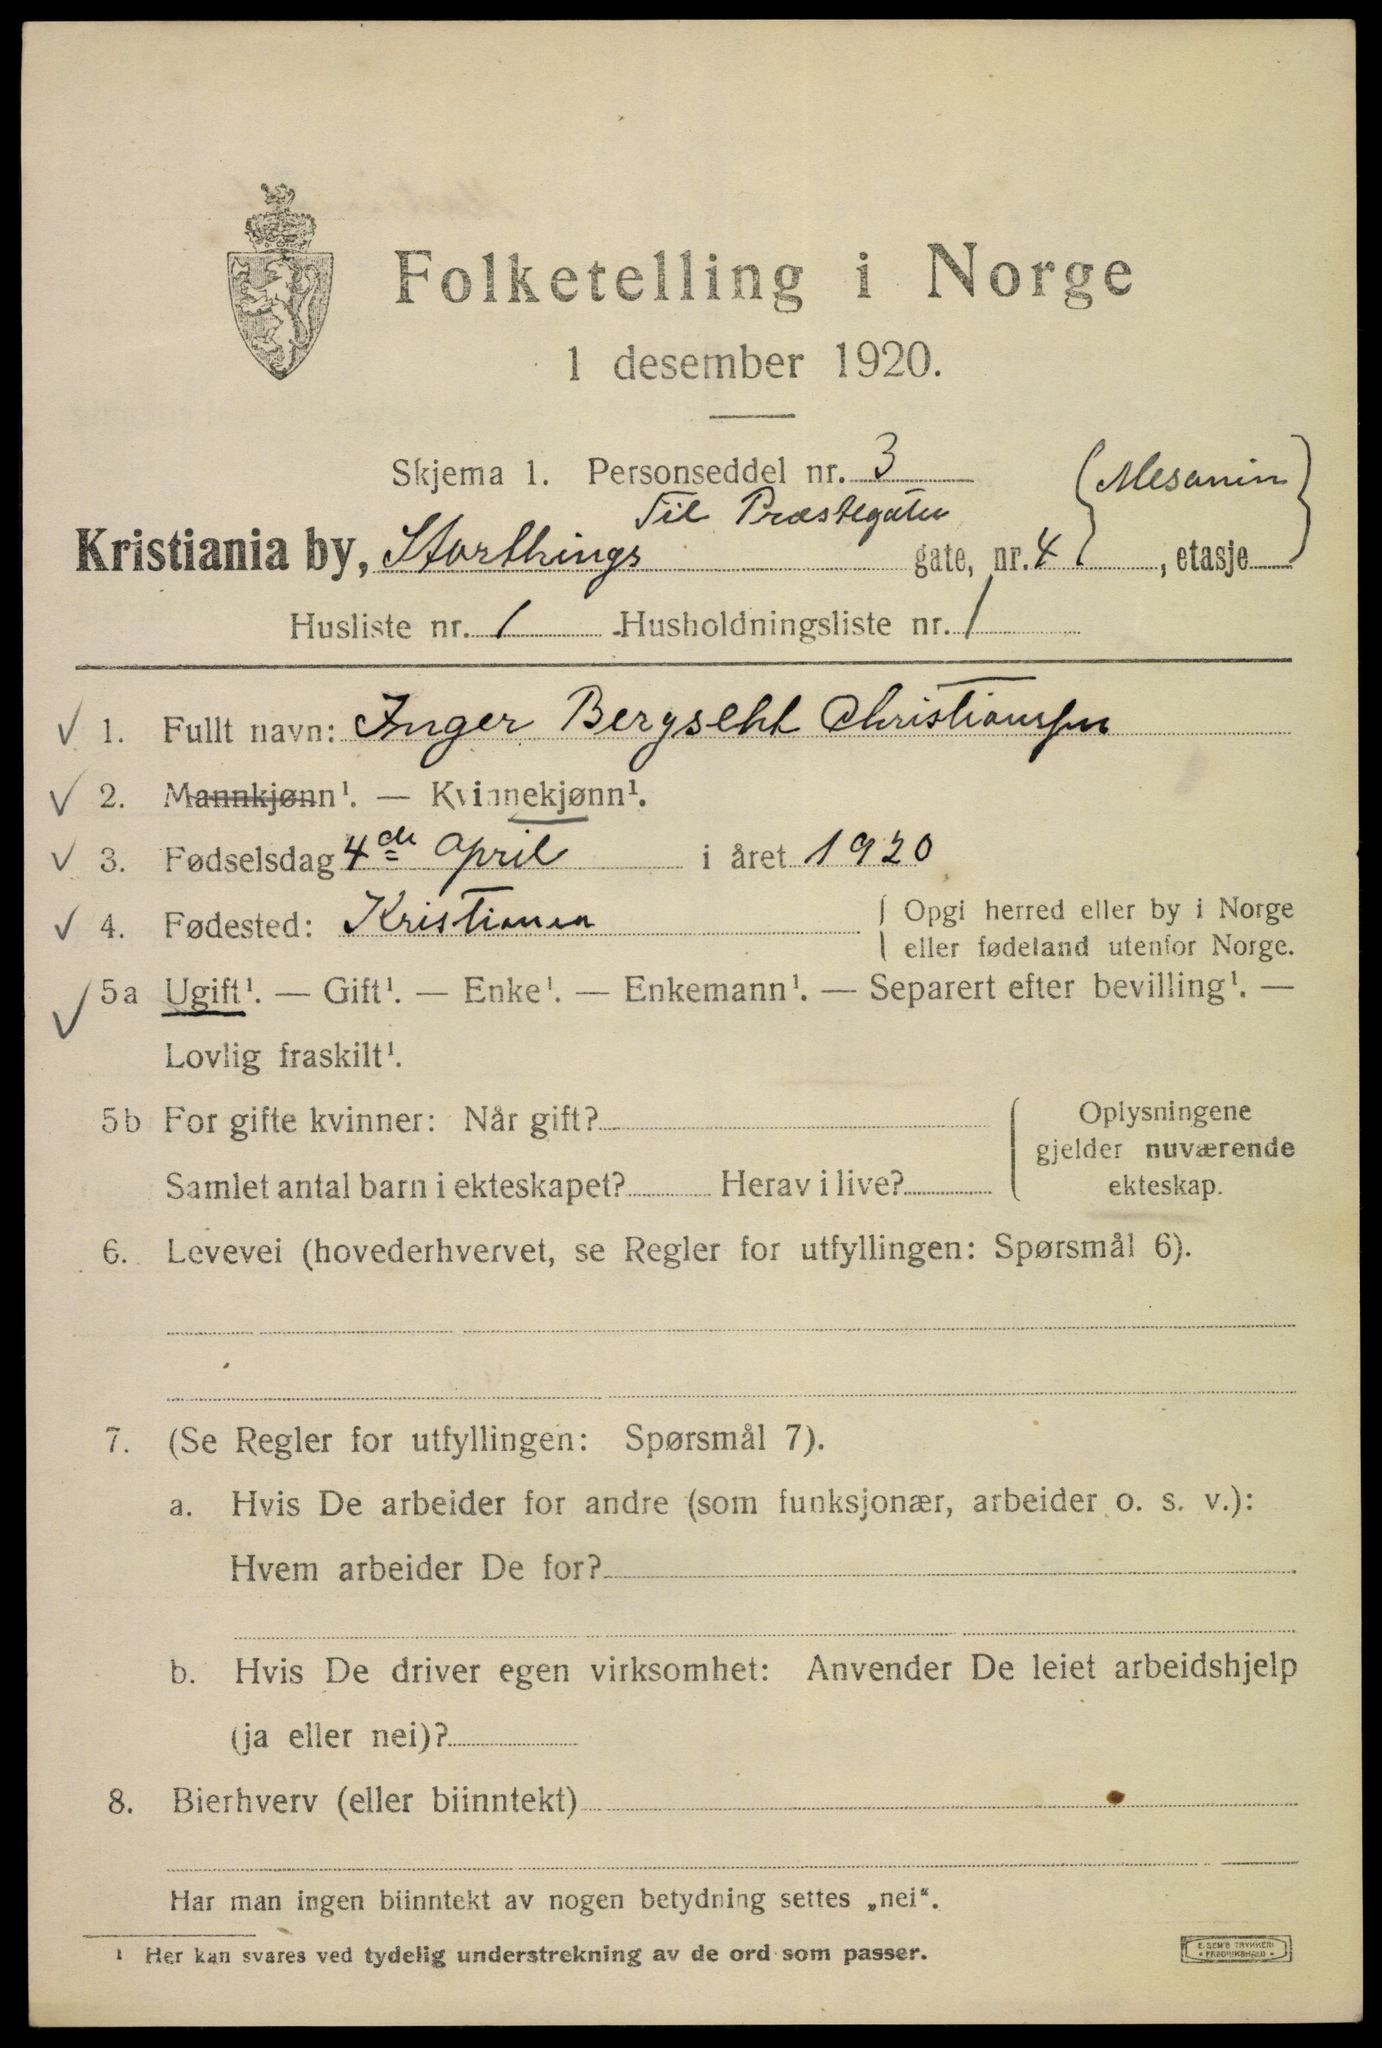 Folketelling i Norge
1 desember 1920.
Skjema 1. Personseddel nr. 3
Til Præstegaten
(Mesanin)
Kristiania by, Storthings gate, nr. 4, etasje
Husliste nr. 1 Husholdningsliste nr. 1
1. Fullt navn: Inger Bergsehl Christianssen
2. Mannkjønn¹. — Kvinnekjønn¹.
3. Fødselsdag 4de April i året 1920
4. Fødested: Kristiania { Opgi herred eller by i Norge
eller fødeland utenfor Norge.
5a Ugift¹. — Gift¹. — Enke¹. — Enkemann¹. — Separert efter bevilling¹. —
Lovlig fraskilt¹.
5b For gifte kvinner: Når gift?
Samlet antal barn i ekteskapet? Herav i live?
Oplysningene
gjelder nuværende
ekteskap.
6. Levevei (hovederhvervet, se Regler for utfyllingen: Spørsmål 6).
7. (Se Regler for utfyllingen: Spørsmål 7).
a. Hvis De arbeider for andre (som funksjonær, arbeider o. s. v.):
Hvem arbeider De for?
b. Hvis De driver egen virksomhet: Anvender De leiet arbeidshjelp
(ja eller nei)?
8. Bierhverv (eller biinntekt)
Har man ingen biinntekt av nogen betydning settes „nei“.
¹ Her kan svares ved tydelig understrekning av de ord som passer.
E. SEM'S TRYKKERI
• FREDRIKSHALD •